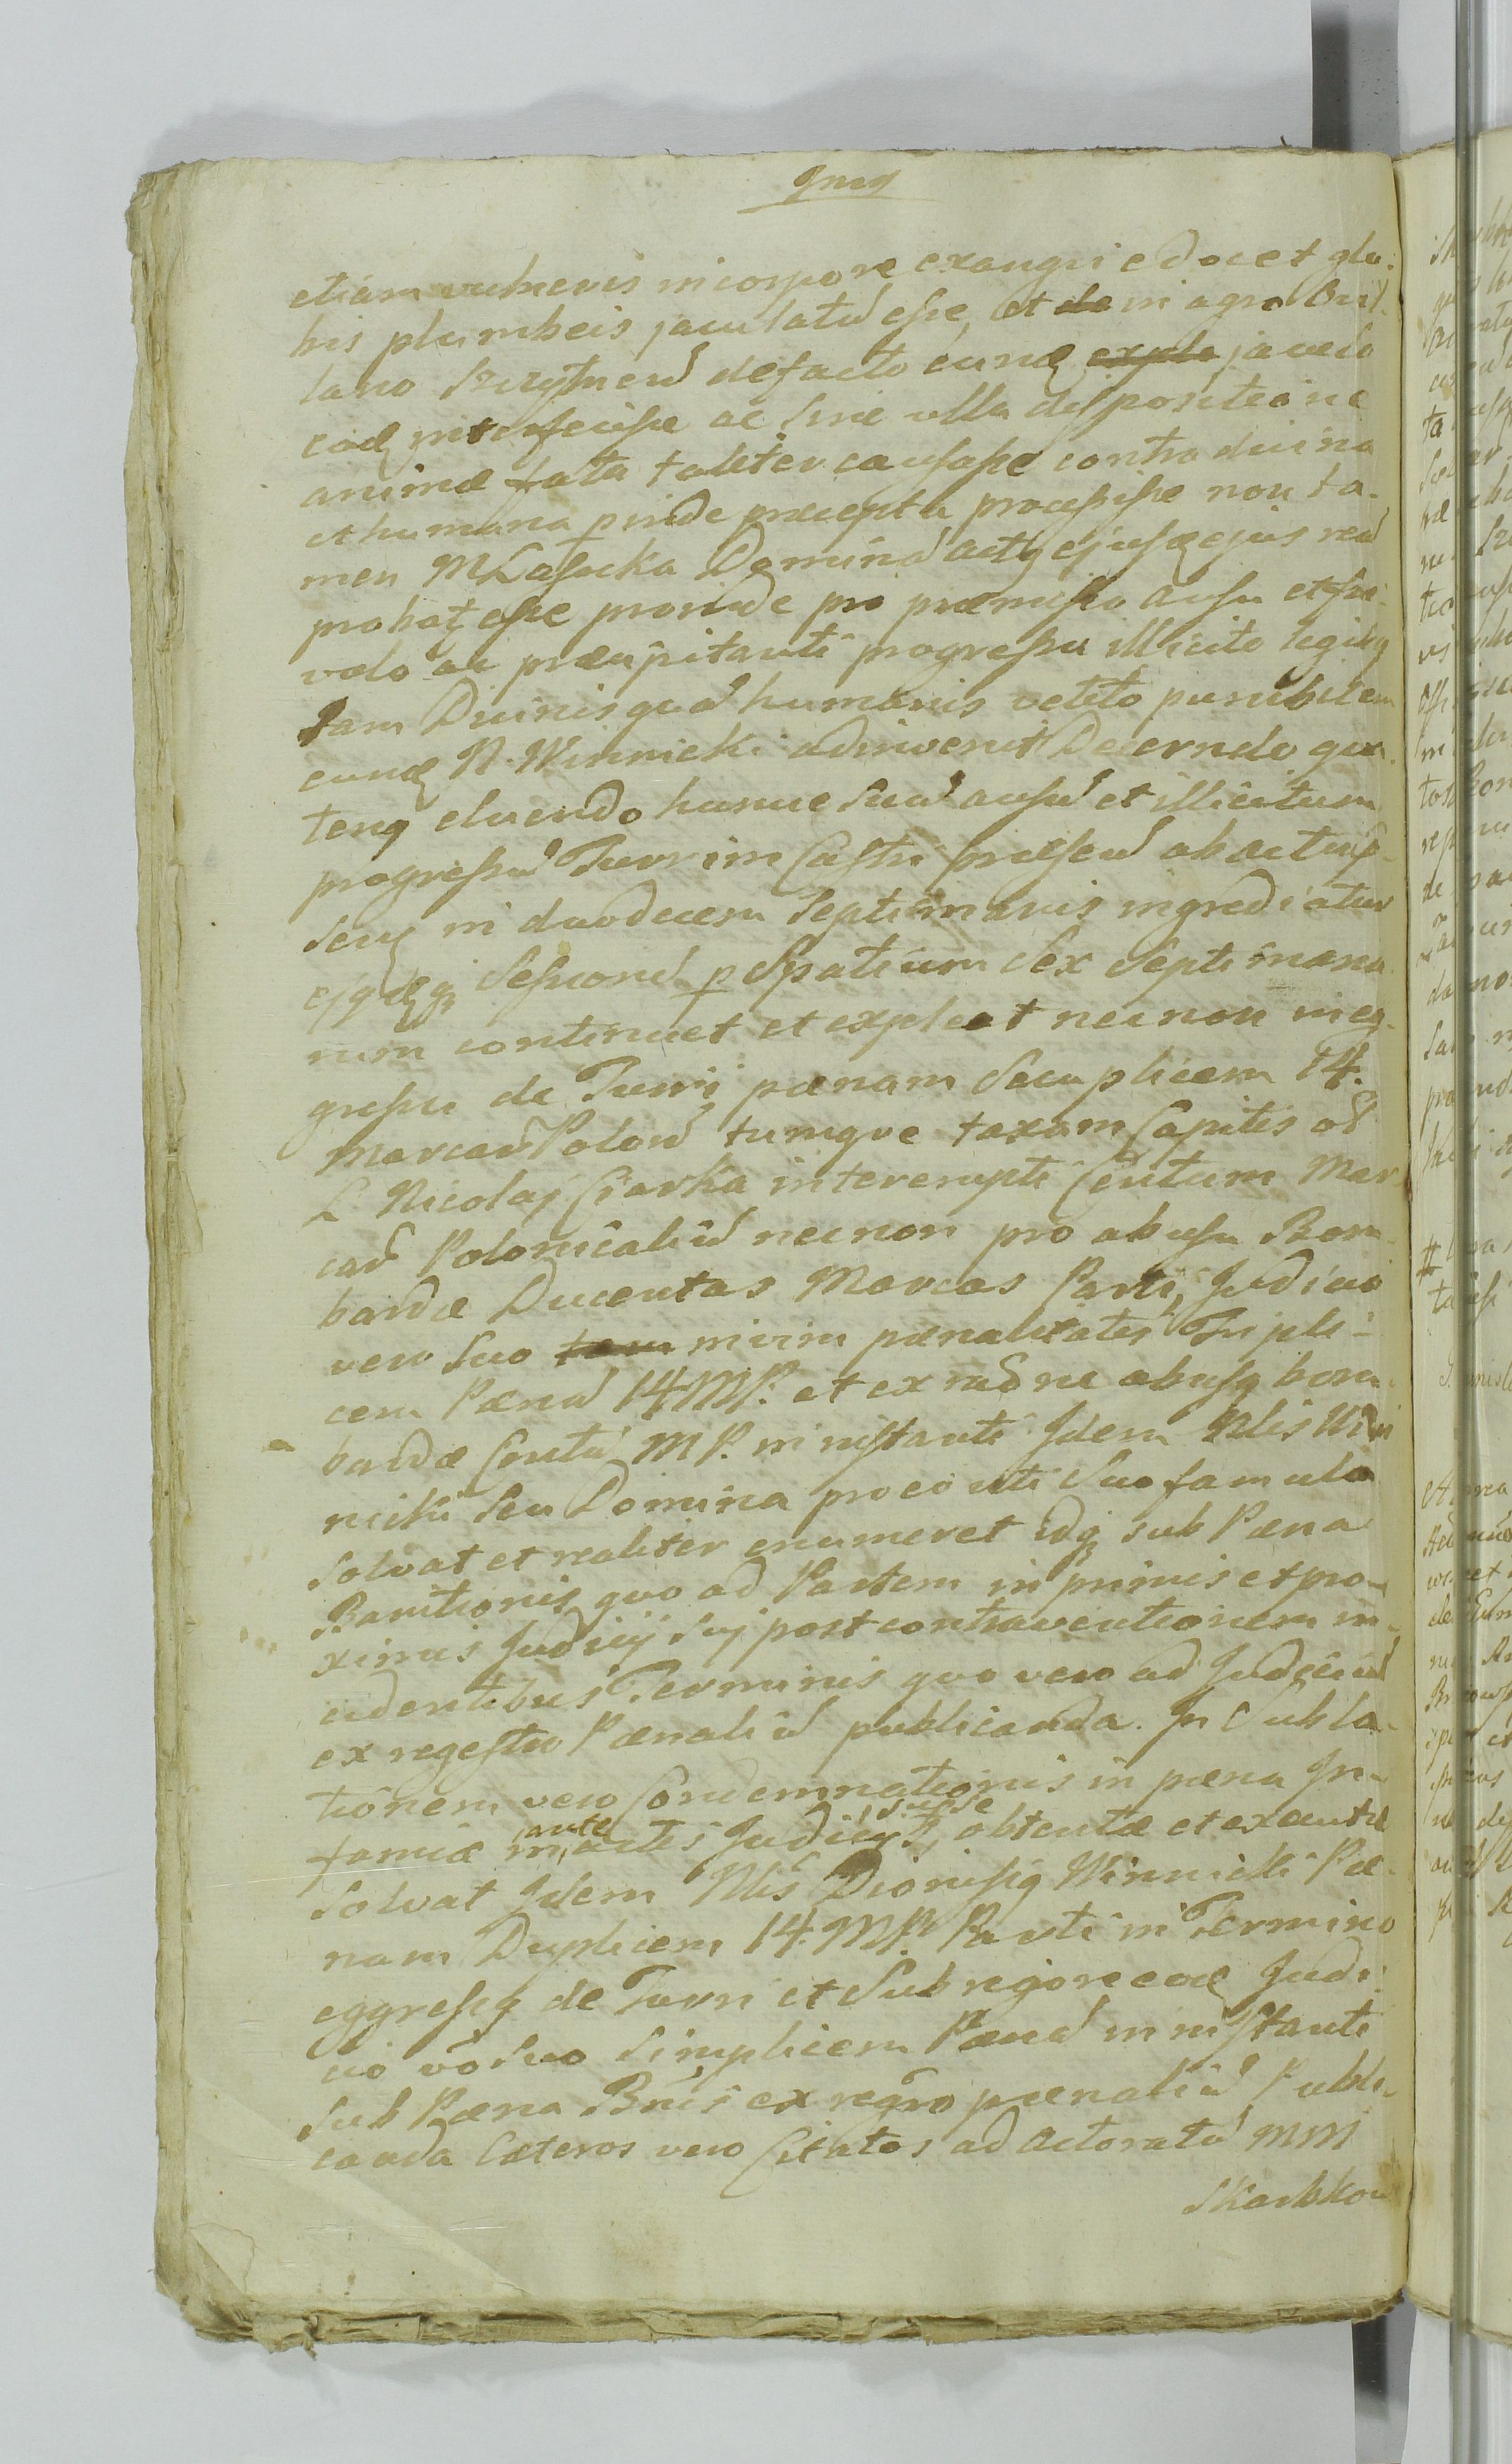 etiam vulneris in corpore exangvi edocet glo-
bis plumbeis jaculatũ esse, et de in agro
lano defacto eundẽ explo jaculo
eodẽ interfecisse ac sine ulla dispositione
animæ fata taliter causasse contra divina
et humana pinde præcepta processisse non ta-
men M Lasucka Domina actꝯ ejusdẽ ejus rea
probatꝯ esse proinde pro præmisso ausu et fri-
volo ac præcipitanti progressu illicito legibꝯ
tam Divinis quã humanis vetito punibilem
eundẽ N. Winnicki adinvenit Decerndo qua-
tenꝯ eluendo hunce suũ ausũ et illicitum
progressũ Turrim Castri præsen ab actu
senꝯ in duodecem Septimanis ingrediatur
ejꝯdẽqꝫ Sessionẽ p Spatium Sex Septimana-
rum continuet et expleat necnon in eg-
gressu de Turri pænam Secuplicem 14.
Marcarũ Polon tumque taxam Capitis ol
L Nicolaj Ciarka interempti Centum Mar
carũ Polonicaliũ necnon pro abusu Bom-
bardæ Ducentas Marcas Parti, Judicio
vero suo tam nimirum pænalitatis Tripli-
cem Pænã 14 MP. et ex raõne abusꝯ bom-
bardæ Centũ MP. in instanti Idem Nlis Win
nicki seu Domina pro eo uti suo famulo
solvat et realiter enumeret idqꝫ sub Pæna
Banitionis quo ad Partem in primis et pro-
ximis Judicij suj post contraventionem in-
cidentibus Terminis quo vero ad Judiciũ
ex regestro Pænaliũ publicanda. In Subla-
tionem vero Condemnationis in pæna In-
famiæ in ante actis Judicijs suisse obtentæ et exeutũ
solvat Idem Nlis Dionisꝯ Winnicki Pæ-
nam Duplicem 14. MP. Parti in Termino
eggressꝯ de Turri et Sub rigore eodẽ Judi-
cio vo suo simplicem Pænã in instanti
sub Pæna Bnis ex regro pænaliũ Publi-
canda Cæteros vero Citatos ad Actoratũ MM
Skarbkow